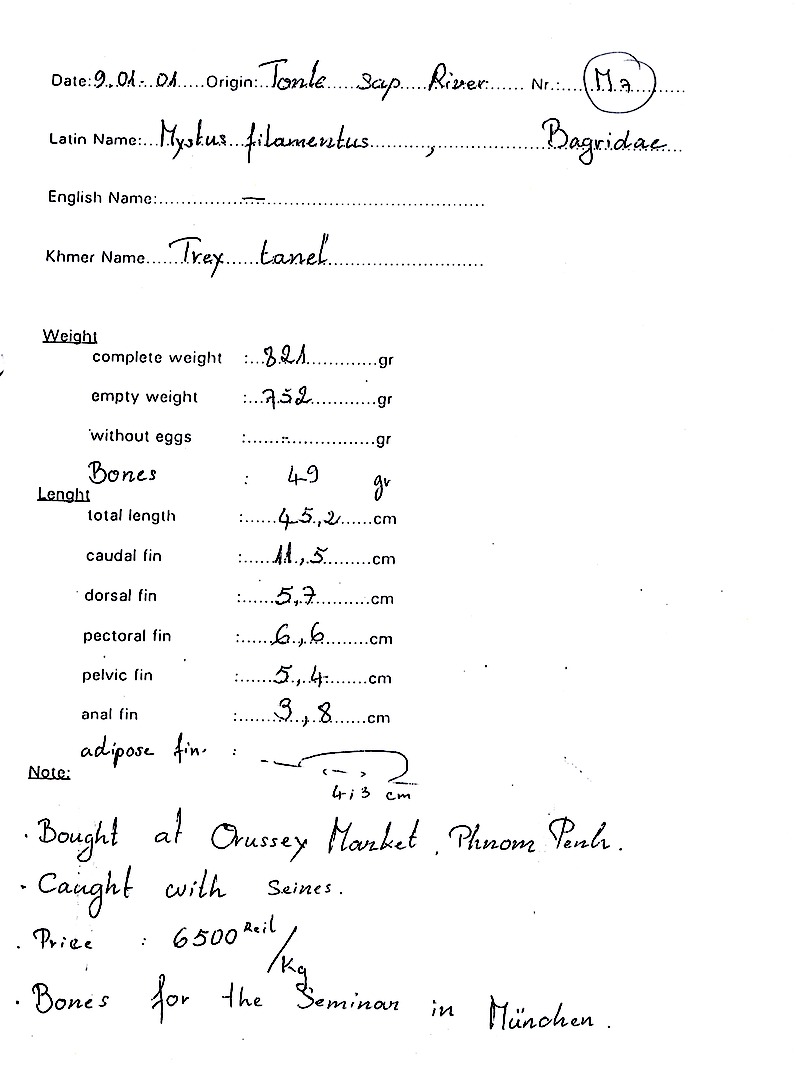 Date: 9.01.01 Origin: Tonle Sap River Nr.: M7
Latin Name: Mystus filamentus, Bagridae
English Name: —
Khmer Name Trey tanel
Weight
complete weight : 821 gr
empty weight : 752 gr
without eggs : - gr
Bones : 49 gr
Lenght
total length : 45,2 cm
caudal fin : 11,5 cm
dorsal fin : 5,7 cm
pectoral fin : 6,6 cm
pelvic fin : 5,4 cm
anal fin : 3,8 cm
adipose fin :
4,3 cm
Note:
· Bought at Orussey Market, Phnom Penh.
- Caught with Seines.
· Price : 6500 Reil/Kg
· Bones for the Seminar in München.